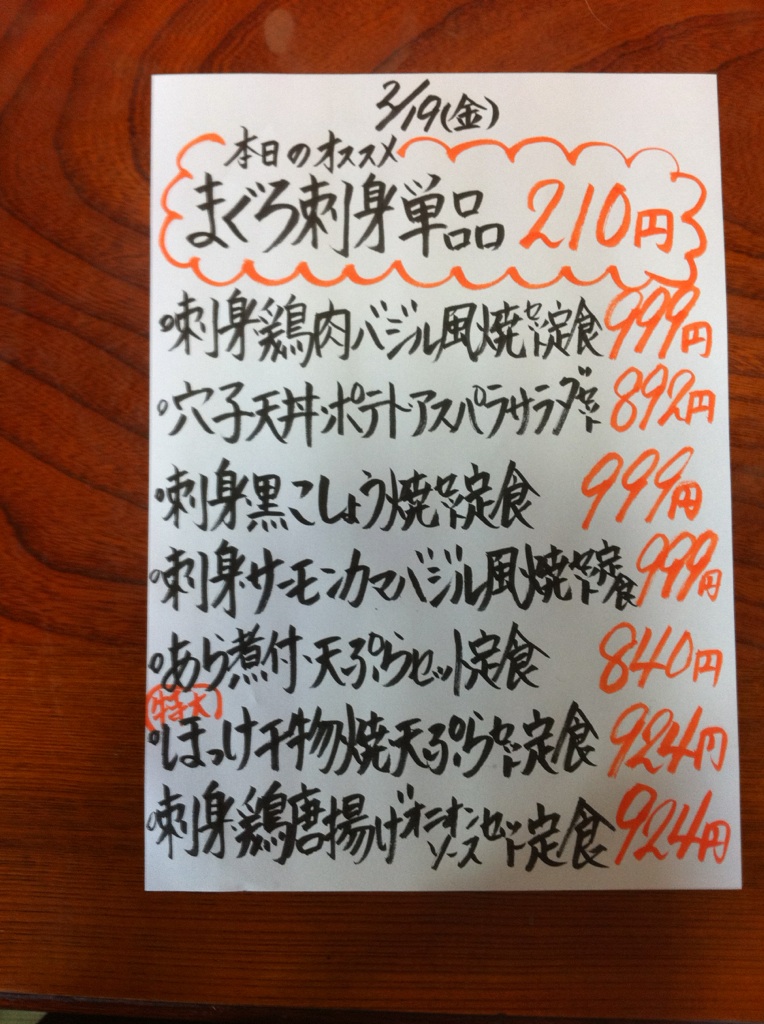 2/19(金)
本日のオススメ
まぐろ刺身単品 210円
・刺身鶏肉バジル風焼セット定食 999円
・穴子天丼・ポテトアスパラサラダセット 892円
・刺身黒こしょう焼セット定食 999円
・刺身サーモンカマバジル風焼セット定食 999円
・あら煮付・天ぷらセット定食 840円
(特大)
・ほっけ干物焼天ぷらセット定食 924円
・刺身鶏唐揚げオニオンソースセット定食 924円